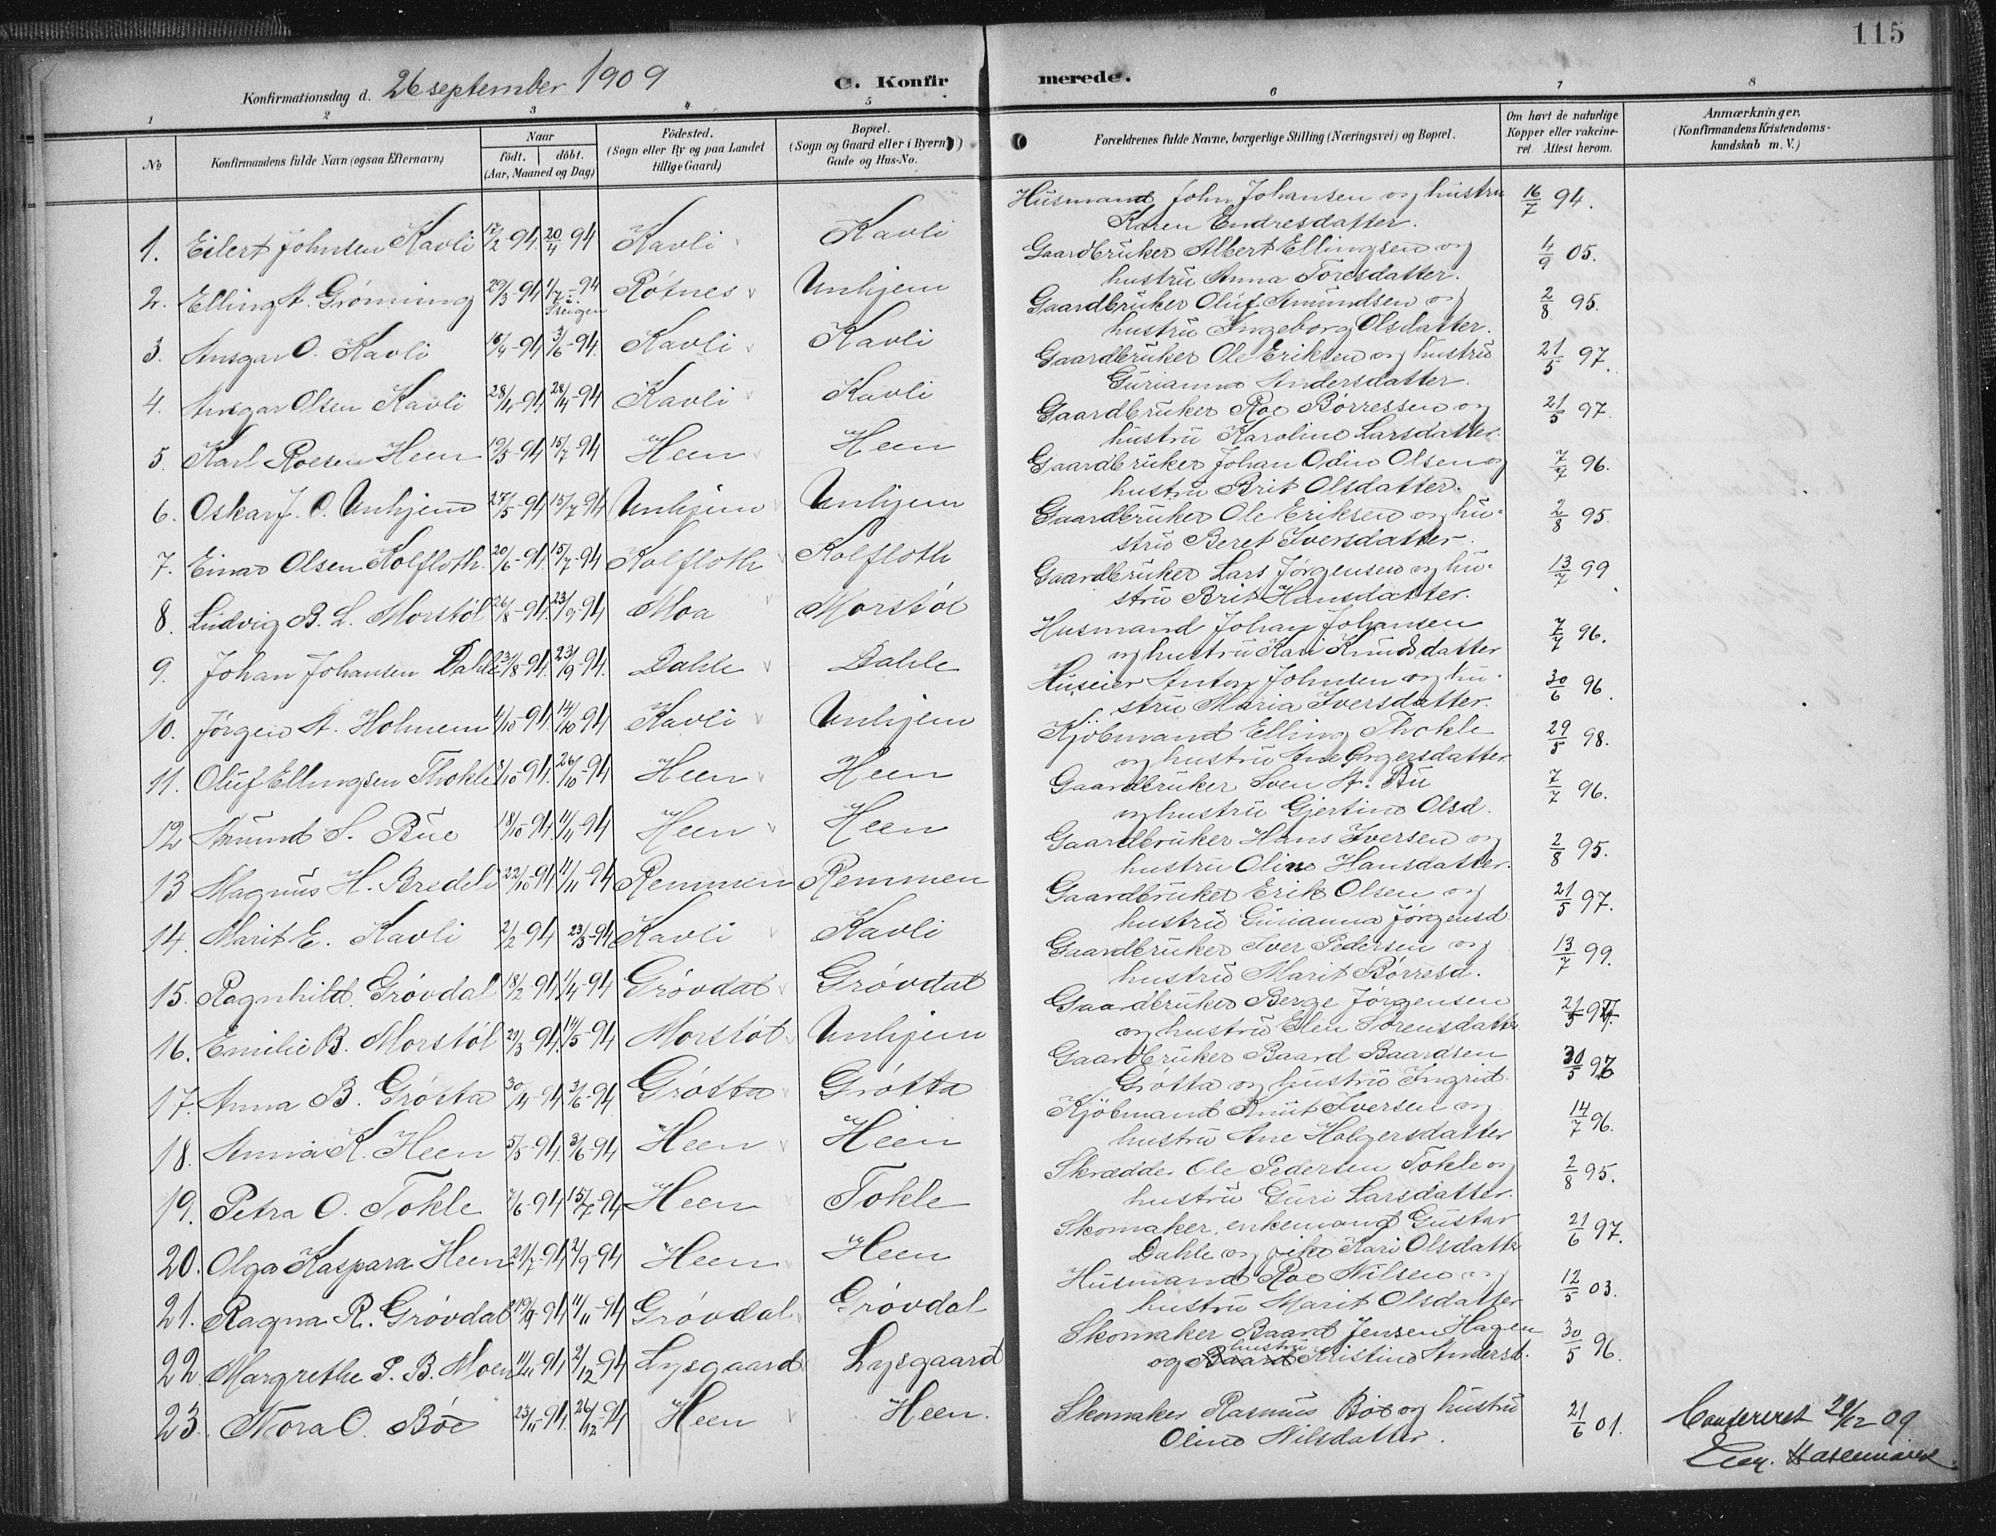 115
Konfirmationsdag d. 26 september 1909
C. Konfirmerede.
1 2 3 4 5 6 7 8
No
Konfirmandens fulde Navn (ogsaa Efternavn)
Naar
født. døbt.
(Aar, Maaned og Dag)
Fødested.
(Sogn eller By og paa Landet
tillige Gaard)
Bopæl.
(Sogn og Gaard eller i Byern
Gade og Hus-No.
Forældrenes fulde Navne, borgerlige Stilling (Næringsvei) og Bopæl.
Om havt de naturlige
Kopper eller vakcine-
ret. Attest herom.
Anmærkninger.
(Konfirmandens Kristendoms-
kundskab m. V.)
1. Eilert Johnsen Kavli 17/2-94 20/4 94 Kavli Kavli Husmand John Johansen og hustru 16/7 94.
Karen Endresdatter.
2. Elling A. Grønning 29/3-94 1/7-94 Røtnes Unhjem Gaardbruker Albert Ellingsen og 4/9 05.
hustru Anna Toresdatter.
3. Ansgar O. Kavli 3/6-94 Kavli Kavli Gaardbruker Oluf Amundsen og 2/8 95.
hustru Ingeborg Olsdatter.
4. Ansgar Olsen Kavli 28/4-94 Kavli Kavli Gaardbruker Ole Eriksen og hustru 21/5 97.
Gurianna Andersdatter.
5. Karl Roesen Heen 19/5-94 15/7-94 Heen Heen Gaardbruker Roe Børressen og 21/5 97.
hustru Karoline Larsdatter.
6. Oskar J. O. Unhjem 27/5-94 15/7-94 Unhjem Unhjem Gaardbruker Johan Odin Olsen og 7/7 96.
hustru Brit Olsdatter.
7. Einar Olsen Kolfloth 20/6-94 15/7-94 Kolfloth Kolfloth Gaardbruker Ole Eriksen og hu- 2/8 95.
stru Beret Iversdatter.
8. Ludvig B. L. Morstøl 26/8-94 23/9-94 Moa Morstøl Gaardbruker Lars Jørgensen og hu- 13/7 99
stru Brit Hansdatter.
9. Johan Johansen Dahle 23/8-94 23/9-94. Dahle Dahle Husmand Johan Johansen 7/7 96.
og hustru Kari Knudsdatter
10. Jørgen A. Holmem 4/10-94 14/10-94 Kavli Unhjem Huseier Anton Johnsen og hu- 30/6 96.
stru Maria Iversdatter.
11. Oluf Ellingsen Thokle 26/10-94 Heen Heen Kjøbmand Elling Thokle 29/5 98.
og hustru Ane
12 Amund S. Bue 18/10-94 11/11-94 Heen Heen Gaardbruker Sven A. Bu 7/7 96.
og hustru Gjertine Olsd.
13 Magnus H. Bredeli 22/10-94 11/11-94 Remmen Remmen Gaardbruker Hans Iversen og 2/8 95.
hustru Oline Hansdatter.
14. Marit E. Kavli 2/2-94 23/3-94 Kavli Kavli Gaardbruker Erik Olsen og 21/5 97.
hustru Gurianna Jørgensd
15. Ragnhild Grøvdal 18/2-94 1/4-94 Grøvdal Grøvdal Gaardbruker Iver Pedersen og 13/7 99.
hustru Marit Børresd.
16. Emilie B. Morstøl 29/3-94 14/5-94 Morstøl Unhjem Gaardbruker Berge Jørgensen
og hustru Elen Sørensdatter
17. Anna B. Grøtta 30/4-94 3/6-94 Grøtta Grøtta Gaardbruker Baard Baardsen
Grøtta og hustru Ingrid.
18. Anna K. Heen 5/5-94 3/6-94 Heen Heen Kjøbmand Knut Iversen og 14/7 96.
hustru Ane Holgersdatter
19. Petra O. Tokle 7/6-94 15/7-94 Heen Tokle Skrædder Ole Pedersen Tokle og 2/8 95.
hustru Guri Larsdatter.
20. Olga Kaspara Heen 21/7-94 2/9-94 Heen Heen Skomaker, enkemand Gustav 21/6 97.
Dahle og pike Kari Olsdatter
21. Ragna R. Grøvdal 19/9-94 11/11-94 Grøvdal Grøvdal Husmand Roe Nilsen og 12/5 03.
hustru Marit Olsdatter
22. Margrethe P. B. Moen 2/12-94 Lysgaard Lysgaard Skomaker Baard Jensen Hagen 30/5 96.
og hustru Kristine Andersd.
23. Nora O. Bøe 23/11-94 26/12-94 Heen Heen. Skomaker Rasmus Bøe og hustru 21/6 01.
Oline Nilsdatter.
Confereret 29/12 09